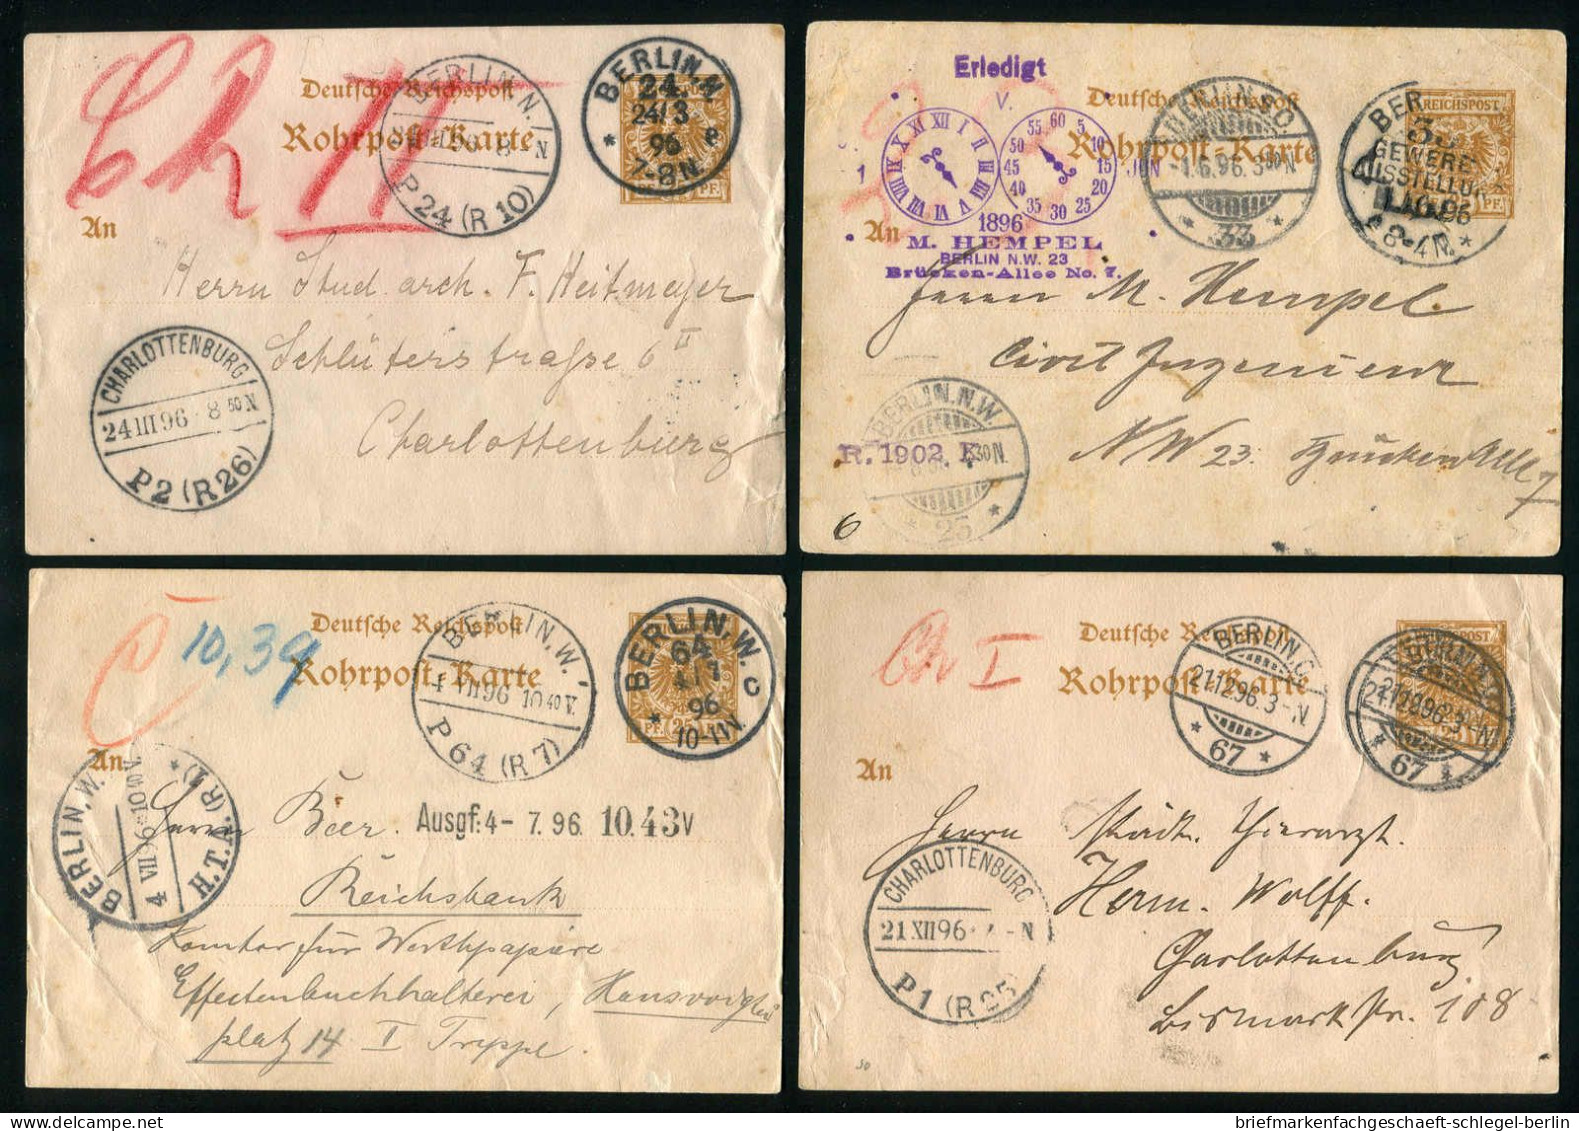 Ch II
Deutsche Reichspost
Rohrpost-Karte
BERLIN.N.
P 24 (R 10)
BERLIN.N.
24
24/3
96
7-8N.
PF.
An
Herrn Stud. arch. F. Heitmeyer
Schlüterstraße 6 II
Charlottenburg
CHARLOTTENBURG
24 III 96 8 50 N
P2 (R26)
Erledigt
V.
1 JUN
1896
M. HEMPEL
BERLIN N.W. 23
Brücken-Allee No. 7.
Deutsche Reichspost
Rohrpost-Karte
BERLIN.SO
-1.6.96. 3 30 N
* 33 *
REICHSPOST
GEWERBE
AUSSTELLUNG
1.6.96
An
Herrn M. Hempel
Civil Ingenieur
NW 23. Brücken Allee 7
BERLIN.N.W.
30N.
* 25 *
R. 1902.
6
C 10,39
Deutsche Reichspost
Rohrpost-Karte
BERLIN,W.
4 VII 96 10 40 V.
P 64 (R 7)
BERLIN,W.
64
4/7
96
10-11V.
PF. 25
An
BERLIN,W.
4 VII 96 10 V
H.T.A. (R 1)
Herrn Beer.
Ausgf: 4- 7.96. 10.43V
Reichsbank
Kontor für Werthpapiere
Effectenbuchhalterei, Hausvoigtei
platz 14 I Treppe.
Ch I
Deutsche Reichspost
Rohrpost-Karte
BERLIN.C.
21.12.96. 3-N
* 67 *
REICHSPOST
21.12.96. 3-N.
* 67 *
An
Herrn Städt. Thierarzt.
Herm. Wolff.
Charlottenburg
Bismarckstr. 108
CHARLOTTENBURG
21 XII 96 -N
P1 (R25)
30
briefmarkenfachgeschaeft-schlegel-berlin